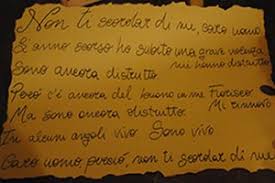 Non ti scordar di me, caro uomo.
Lo anno scorso ho subito una grave violenza
mi hanno distrutto
Sono ancora distrutto.
Però c'è ancora del buono in me Fiorisco
Mi rinnovo
Ma sono ancora distrutto.
In alcuni angoli vivo Sono vivo
Caro uomo perciò, non ti scordar di me.